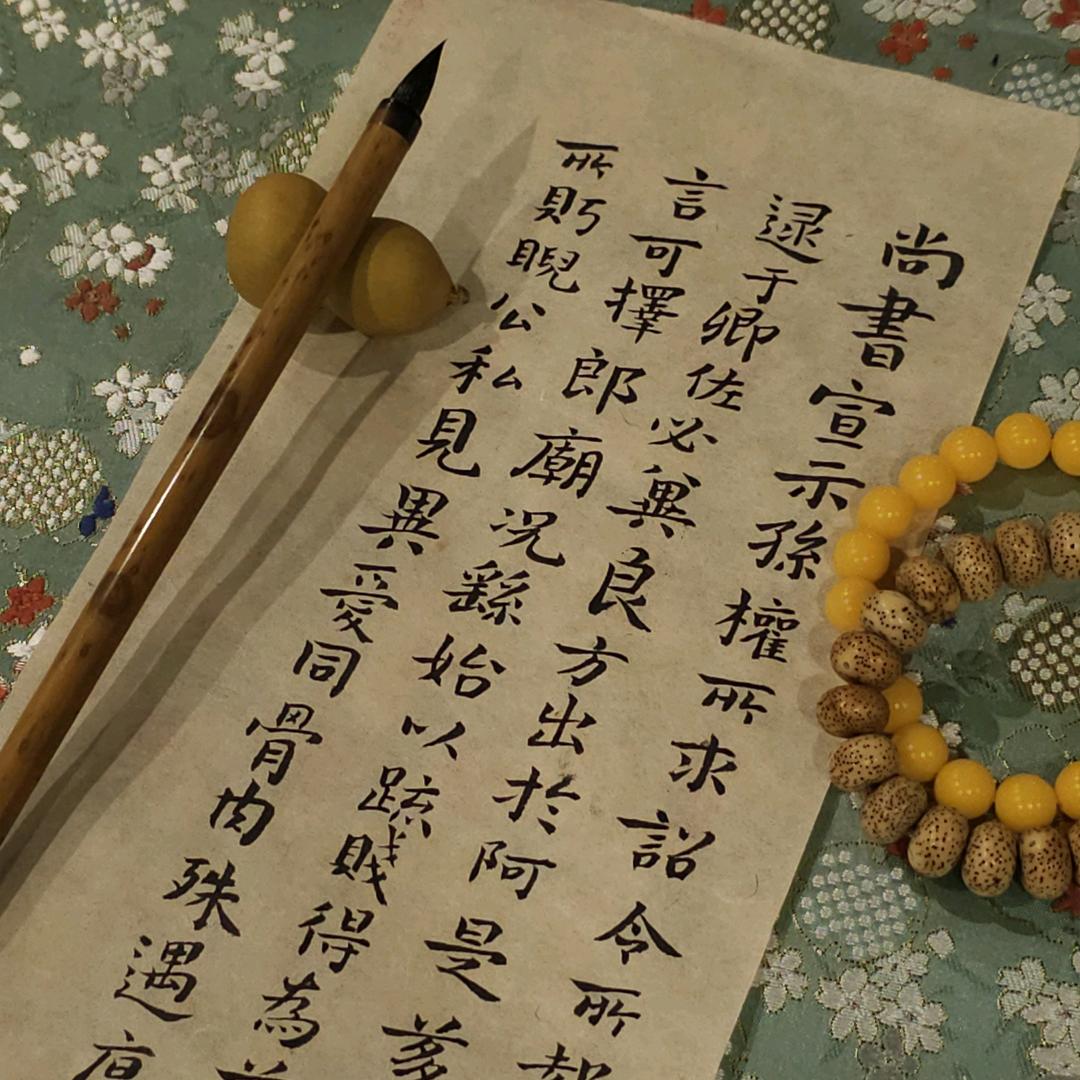 尚書宣示孫權所求詔令所報
逮于卿佐必冀良方出於阿是芻
言可擇郎廟況繇始以踈賤得為
所眄睨公私見異愛同骨肉殊遇厚